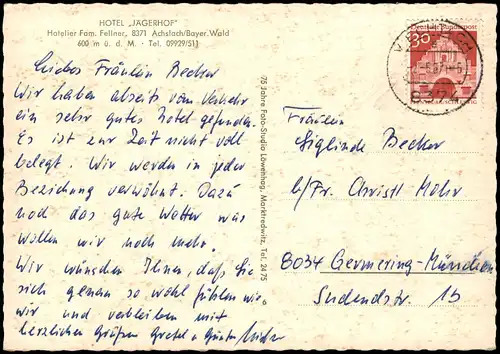 HOTEL „JÄGERHOF"
Hotelier Fam. Fellner, 8371 Achslach/Bayer. Wald
600 m ü. d. M. - Tel. 09929/511
Liebes Fräulein Becker
Wir haben abseits vom Verkehr
ein sehr gutes Hotel gefunden.
Es ist zur Zeit nicht voll
belegt. Wir werden in jeder
Beziehung verwöhnt. Dazu
noch das gute Wetter was
wollen wir noch mehr.
Wir wünschen Ihnen, daß Sie
sich genau so wohl fühlen wie
wir und verbleiben mit
herzlichen Grüßen Gretel u. Günter
75 Jahre Foto-Studio Löwenhag, Marktredwitz, Tel. 2475
30
Fräulein
Siglinde Becker
b/Fr. Christl Mohr
8034 Germering-München
Südendstr. 15